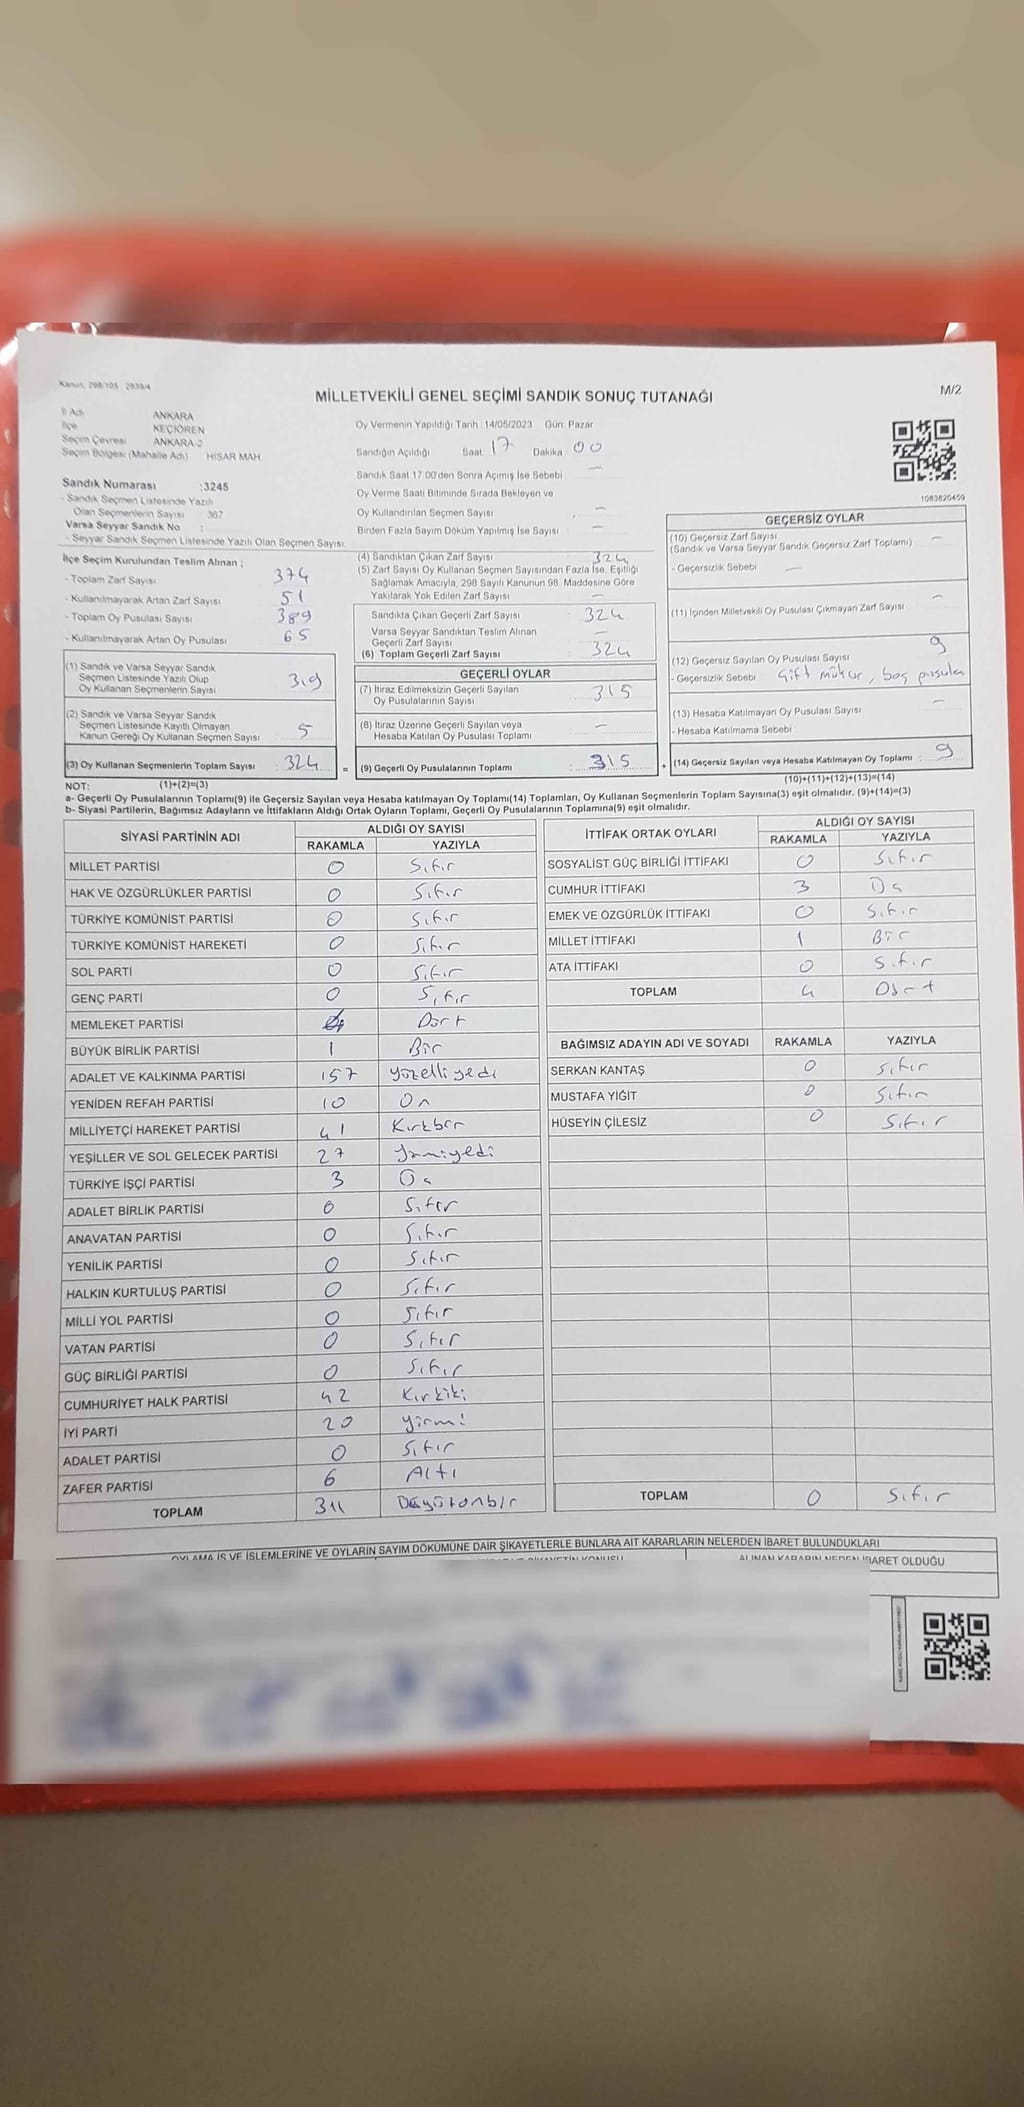 Kanun, 298/105 , 2839/4
M/2
MİLLETVEKİLİ GENEL SEÇİMİ SANDIK SONUÇ TUTANAĞI
İl Adı ANKARA
İlçe KEÇİÖREN
Seçim Çevresi ANKARA-2
Seçim Bölgesi (Mahalle Adı) HİSAR MAH
Sandık Numarası :3245
- Sandık Seçmen Listesinde Yazılı
Olan Seçmenlerin Sayısı 367
Varsa Seyyar Sandık No :
- Seyyar Sandık Seçmen Listesinde Yazılı Olan Seçmen Sayısı
Oy Vermenin Yapıldığı Tarih 14/05/2023 Gün: Pazar
Sandığın Açıldığı Saat 17 Dakika 00
Sandık Saat 17:00'den Sonra Açımış İse Sebebi —
Oy Verme Saati Bitiminde Sırada Bekleyen ve
Oy Kullandırılan Seçmen Sayısı —
Birden Fazla Sayım Döküm Yapılmış İse Sayısı —
1083620459
İlçe Seçim Kurulundan Teslim Alınan ;
- Toplam Zarf Sayısı 374
- Kullanılmayarak Artan Zarf Sayısı 51
- Toplam Oy Pusulası Sayısı 389
- Kullanılmayarak Artan Oy Pusulası 65
(1) Sandık ve Varsa Seyyar Sandık
Seçmen Listesinde Yazılı Olup
Oy Kullanan Seçmenlerin Sayısı 319
(2) Sandık ve Varsa Seyyar Sandık
Seçmen Listesinde Kayıtlı Olmayan
Kanun Gereği Oy Kullanan Seçmen Sayısı 5
(3) Oy Kullanan Seçmenlerin Toplam Sayısı : 324 =
(4) Sandıktan Çıkan Zarf Sayısı 324
(5) Zarf Sayısı Oy Kullanan Seçmen Sayısından Fazla İse, Eşitliği
Sağlamak Amacıyla, 298 Sayılı Kanunun 98. Maddesine Göre
Yakılarak Yok Edilen Zarf Sayısı —
Sandıkta Çıkan Geçerli Zarf Sayısı 324
Varsa Seyyar Sandıktan Teslim Alınan
Geçerli Zarf Sayısı —
(6) Toplam Geçerli Zarf Sayısı 324
GEÇERLİ OYLAR
(7) İtiraz Edilmeksizin Geçerli Sayılan
Oy Pusulalarının Sayısı : 315
(8) İtiraz Üzerine Geçerli Sayılan veya
Hesaba Katılan Oy Pusulası Toplamı —
(9) Geçerli Oy Pusulalarının Toplamı : 315 +
GEÇERSİZ OYLAR
(10) Geçersiz Zarf Sayısı
(Sandık ve Varsa Seyyar Sandık Geçersiz Zarf Toplamı) —
- Geçersizlik Sebebi —
(11) İçinden Milletvekili Oy Pusulası Çıkmayan Zarf Sayısı —
(12) Geçersiz Sayılan Oy Pusulası Sayısı 9
- Geçersizlik Sebebi Çift mühür, boş pusula
(13) Hesaba Katılmayan Oy Pusulası Sayısı —
- Hesaba Katılmama Sebebi
(14) Geçersiz Sayılan veya Hesaba Katılmayan Oy Toplamı : 9
NOT: (1)+(2)=(3) (10)+(11)+(12)+(13)=(14)
a- Geçerli Oy Pusulalarının Toplamı(9) ile Geçersiz Sayılan veya Hesaba katılmayan Oy Toplamı(14) Toplamları, Oy Kullanan Seçmenlerin Toplam Sayısına(3) eşit olmalıdır. (9)+(14)=(3)
b- Siyasi Partilerin, Bağımsız Adayların ve İttifakların Aldığı Ortak Oyların Toplamı, Geçerli Oy Pusulalarının Toplamına(9) eşit olmalıdır.
SİYASİ PARTİNİN ADI ALDIĞI OY SAYISI
RAKAMLA YAZIYLA
MİLLET PARTİSİ 0 Sıfır
HAK VE ÖZGÜRLÜKLER PARTİSİ 0 Sıfır
TÜRKİYE KOMÜNİST PARTİSİ 0 Sıfır
TÜRKİYE KOMÜNİST HAREKETİ 0 Sıfır
SOL PARTİ 0 Sıfır
GENÇ PARTİ 0 Sıfır
MEMLEKET PARTİSİ 4 Dört
BÜYÜK BİRLİK PARTİSİ 1 Bir
ADALET VE KALKINMA PARTİSİ 157 yüzelliyedi
YENİDEN REFAH PARTİSİ 10 On
MİLLİYETÇİ HAREKET PARTİSİ 41 Kırkbir
YEŞİLLER VE SOL GELECEK PARTİSİ 27 yirmiyedi
TÜRKİYE İŞÇİ PARTİSİ 3 Üç
ADALET BİRLİK PARTİSİ 0 Sıfır
ANAVATAN PARTİSİ 0 Sıfır
YENİLİK PARTİSİ 0 Sıfır
HALKIN KURTULUŞ PARTİSİ 0 Sıfır
MİLLİ YOL PARTİSİ 0 Sıfır
VATAN PARTİSİ 0 Sıfır
GÜÇ BİRLİĞİ PARTİSİ 0 Sıfır
CUMHURİYET HALK PARTİSİ 42 Kırkiki
İYİ PARTİ 20 yirmi
ADALET PARTİSİ 0 Sıfır
ZAFER PARTİSİ 6 Altı
TOPLAM 311
İTTİFAK ORTAK OYLARI ALDIĞI OY SAYISI
RAKAMLA YAZIYLA
SOSYALİST GÜÇ BİRLİĞİ İTTİFAKI 0 Sıfır
CUMHUR İTTİFAKI 3 Üç
EMEK VE ÖZGÜRLÜK İTTİFAKI 0 Sıfır
MİLLET İTTİFAKI 1 Bir
ATA İTTİFAKI 0 Sıfır
TOPLAM 4 Dört
BAĞIMSIZ ADAYIN ADI VE SOYADI RAKAMLA YAZIYLA
SERKAN KANTAŞ 0 Sıfır
MUSTAFA YİĞİT 0 Sıfır
HÜSEYİN ÇİLESİZ 0 Sıfır
TOPLAM 0 Sıfır
OYLAMA İŞ VE İŞLEMLERİNE VE OYLARIN SAYIM DÖKÜMÜNE DAİR ŞİKAYETLERLE BUNLARA AİT KARARLARIN NELERDEN İBARET BULUNDUKLARI
ALINAN KARARIN NEDEN İBARET OLDUĞU